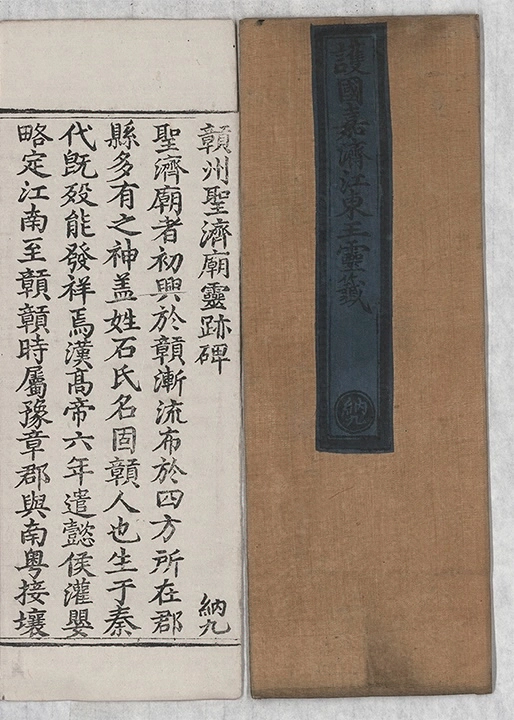 護國嘉濟江東王靈籤
納九
贛州聖濟廟靈跡碑
納九
聖濟廟者初興於贛漸流布於四方所在郡
縣多有之神盖姓石氏名固贛人也生于秦
代旣歿能發祥焉漢髙帝六年遣懿侯灌嬰
略定江南至贛贛時屬豫章郡與南粤接壤